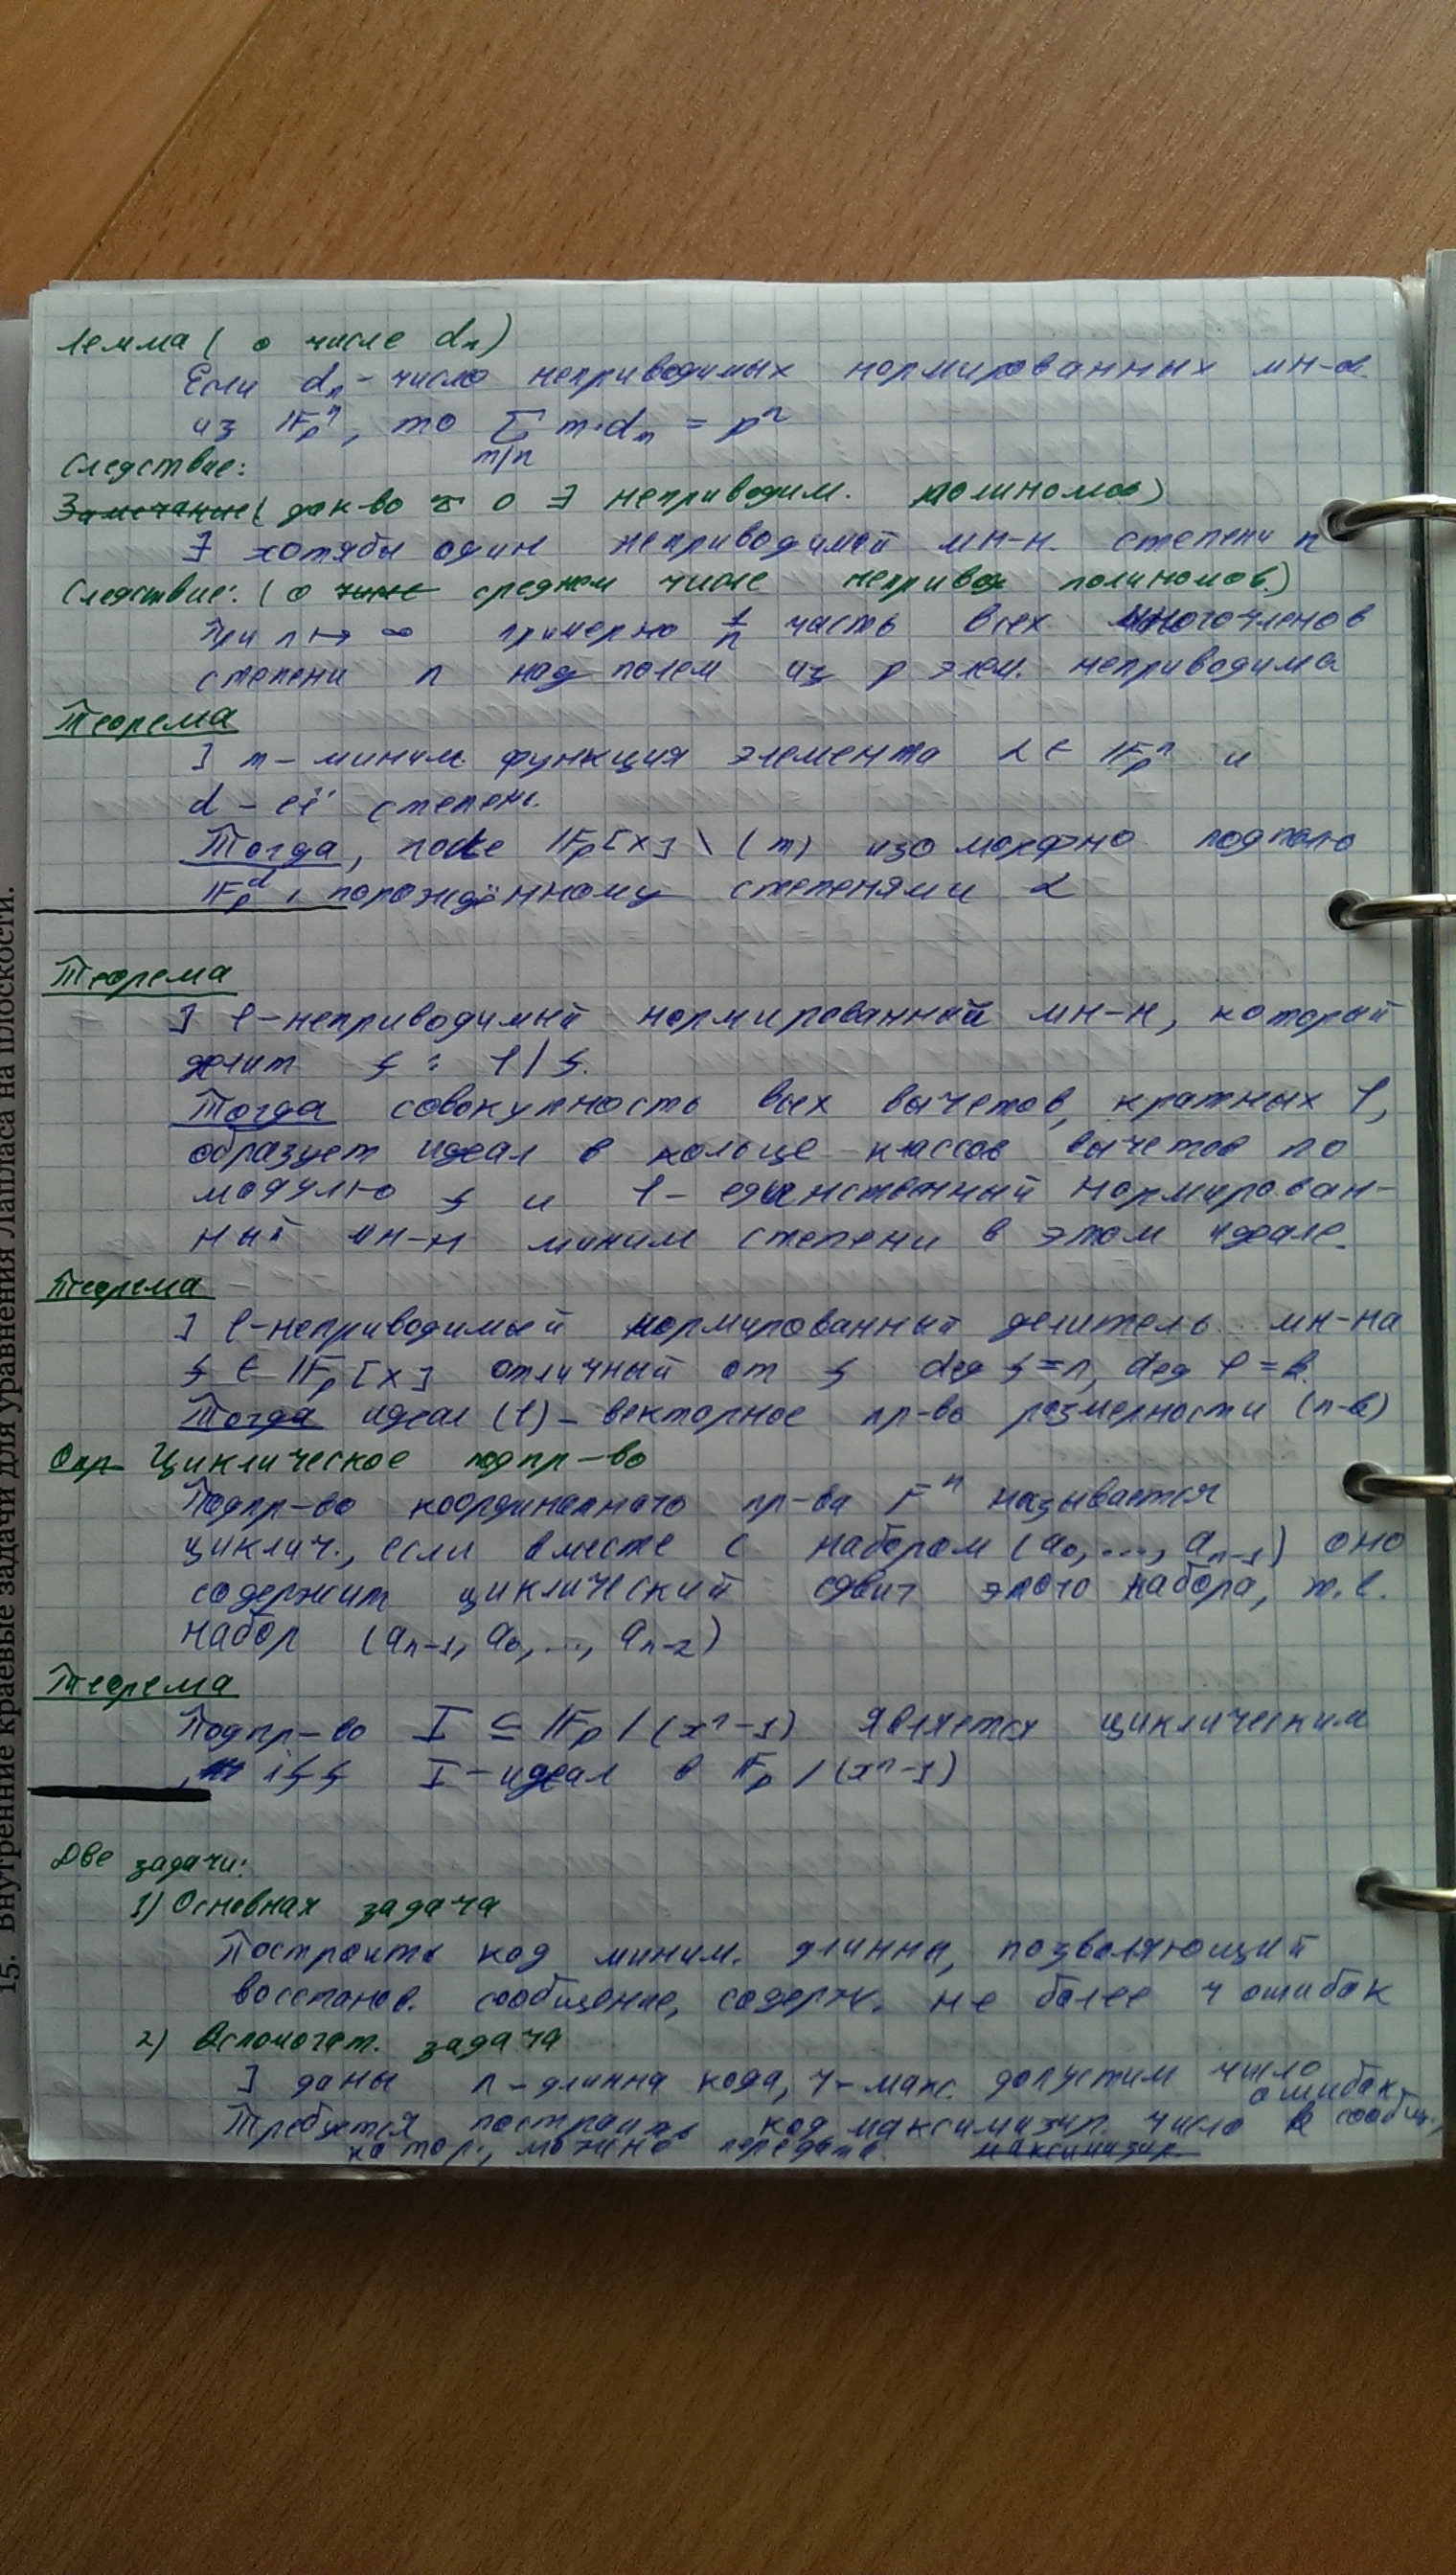 Лемма ( о числе dₙ)
Если dₙ - число неприводимых нормированных мн-
из 𝔽ₚⁿ, то ∑ m·dₘ = pⁿ
m|n
Следствие:
Замечание ( док-во о ∃ неприводим. полиномов)
∃ хотябы один неприводимый мн-н. степени n
Следствие: (о числе среднем числе непривод полиномов.)
При n ↦ ∞ примерно 1/n часть всех многочленов
степени n над полем из p элем. неприводима
Теорема
] m - миним. функция элемента α ∈ 𝔽ₚⁿ и
d - её степень.
Тогда, поле 𝔽ₚ[x] \ (m) изоморфно подполю
𝔽ₚᵈ, порождённому степенями α
Теорема
] l - неприводимый нормированный мн-н, который
делит f : l | f.
Тогда совокупность всех вычетов, кратных l,
образует идеал в кольце классов вычетов по
модулю f и l - единственный нормирован-
ный мн-н миним степени в этом идеале.
Теорема
] l - неприводимый нормированный делитель мн-на
f ∈ 𝔽ₚ[x] отличный от f deg f = n, deg l = k.
Тогда идеал (l) - векторное пр-во размерности (n-k)
Опр Циклическое подпр-во
Подпр-во координатного пр-ва Fⁿ называется
циклич., если вместе с набором (a₀, ..., aₙ₋₁) оно
содержит циклический сдвиг этого набора, т.е.
набор (aₙ₋₁, a₀, ..., aₙ₋₂)
Теорема
Подпр-во I ⊆ 𝔽ₚ / (xⁿ-1) является циклическим
iff I - идеал в 𝔽ₚ / (xⁿ-1)
Две задачи:
1) Основная задача
Построить код миним. длинны, позволяющий
восстанов. сообщение, содерж. не более ч ошибок
2) Вспомогат. задача
] даны n - длинна кода, ч - макс. допустим число
ошибок.
Требуется построить код максимизир. число сообщ.,
котор., можно передать максимизир.
15. Внутренние краевые задачи для уравнения Лапласа на плоскости.